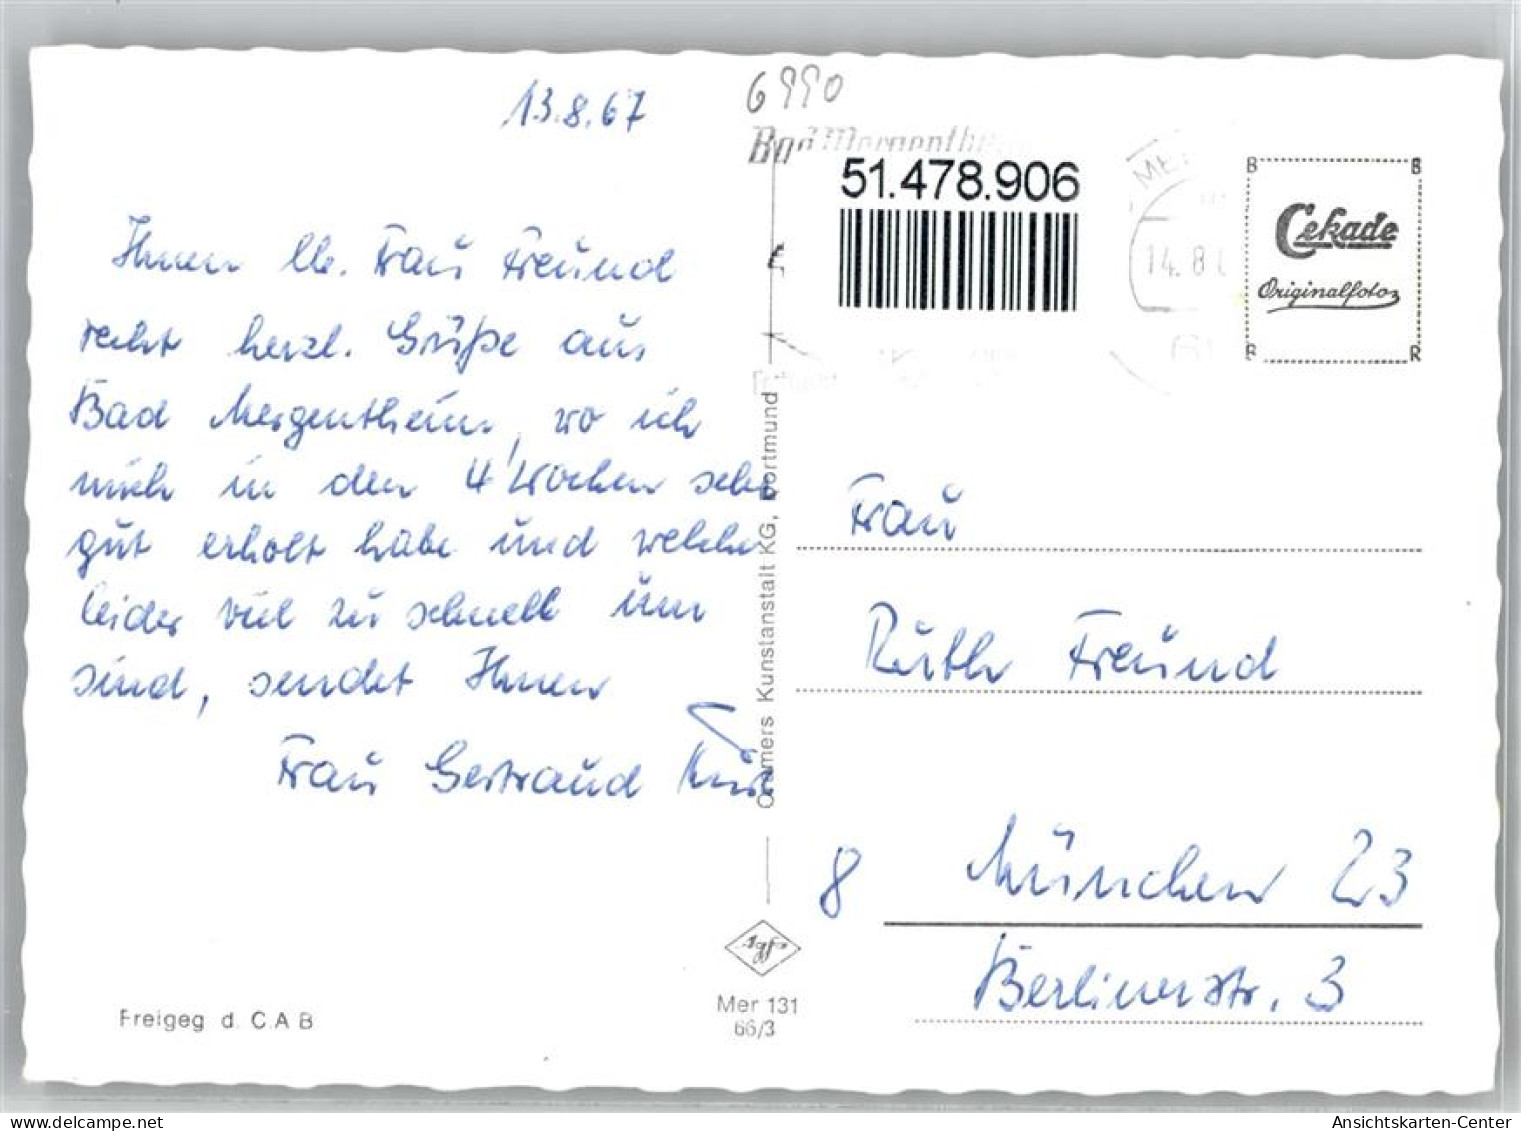 13.8.67
6990
Bad Mergentheim
51.478.906
14. 8
Cekade
Originalfotos
B B
B R
Ihnen lb. Frau Freund
recht herzl. Grüße aus
Bad Mergentheim, wo ich
mich in den 4 Wochen sehr
gut erholt habe und welche
leider viel zu schnell um
sind, sendet Ihnen
Frau Gertraud
Cramers Kunstanstalt KG, Dortmund
Frau
Ruth Freund
8 München 23
Berlinerstr. 3
Agfa
Mer 131
66/3
Freigeg d. C.A B
Ansichtskarten-Center